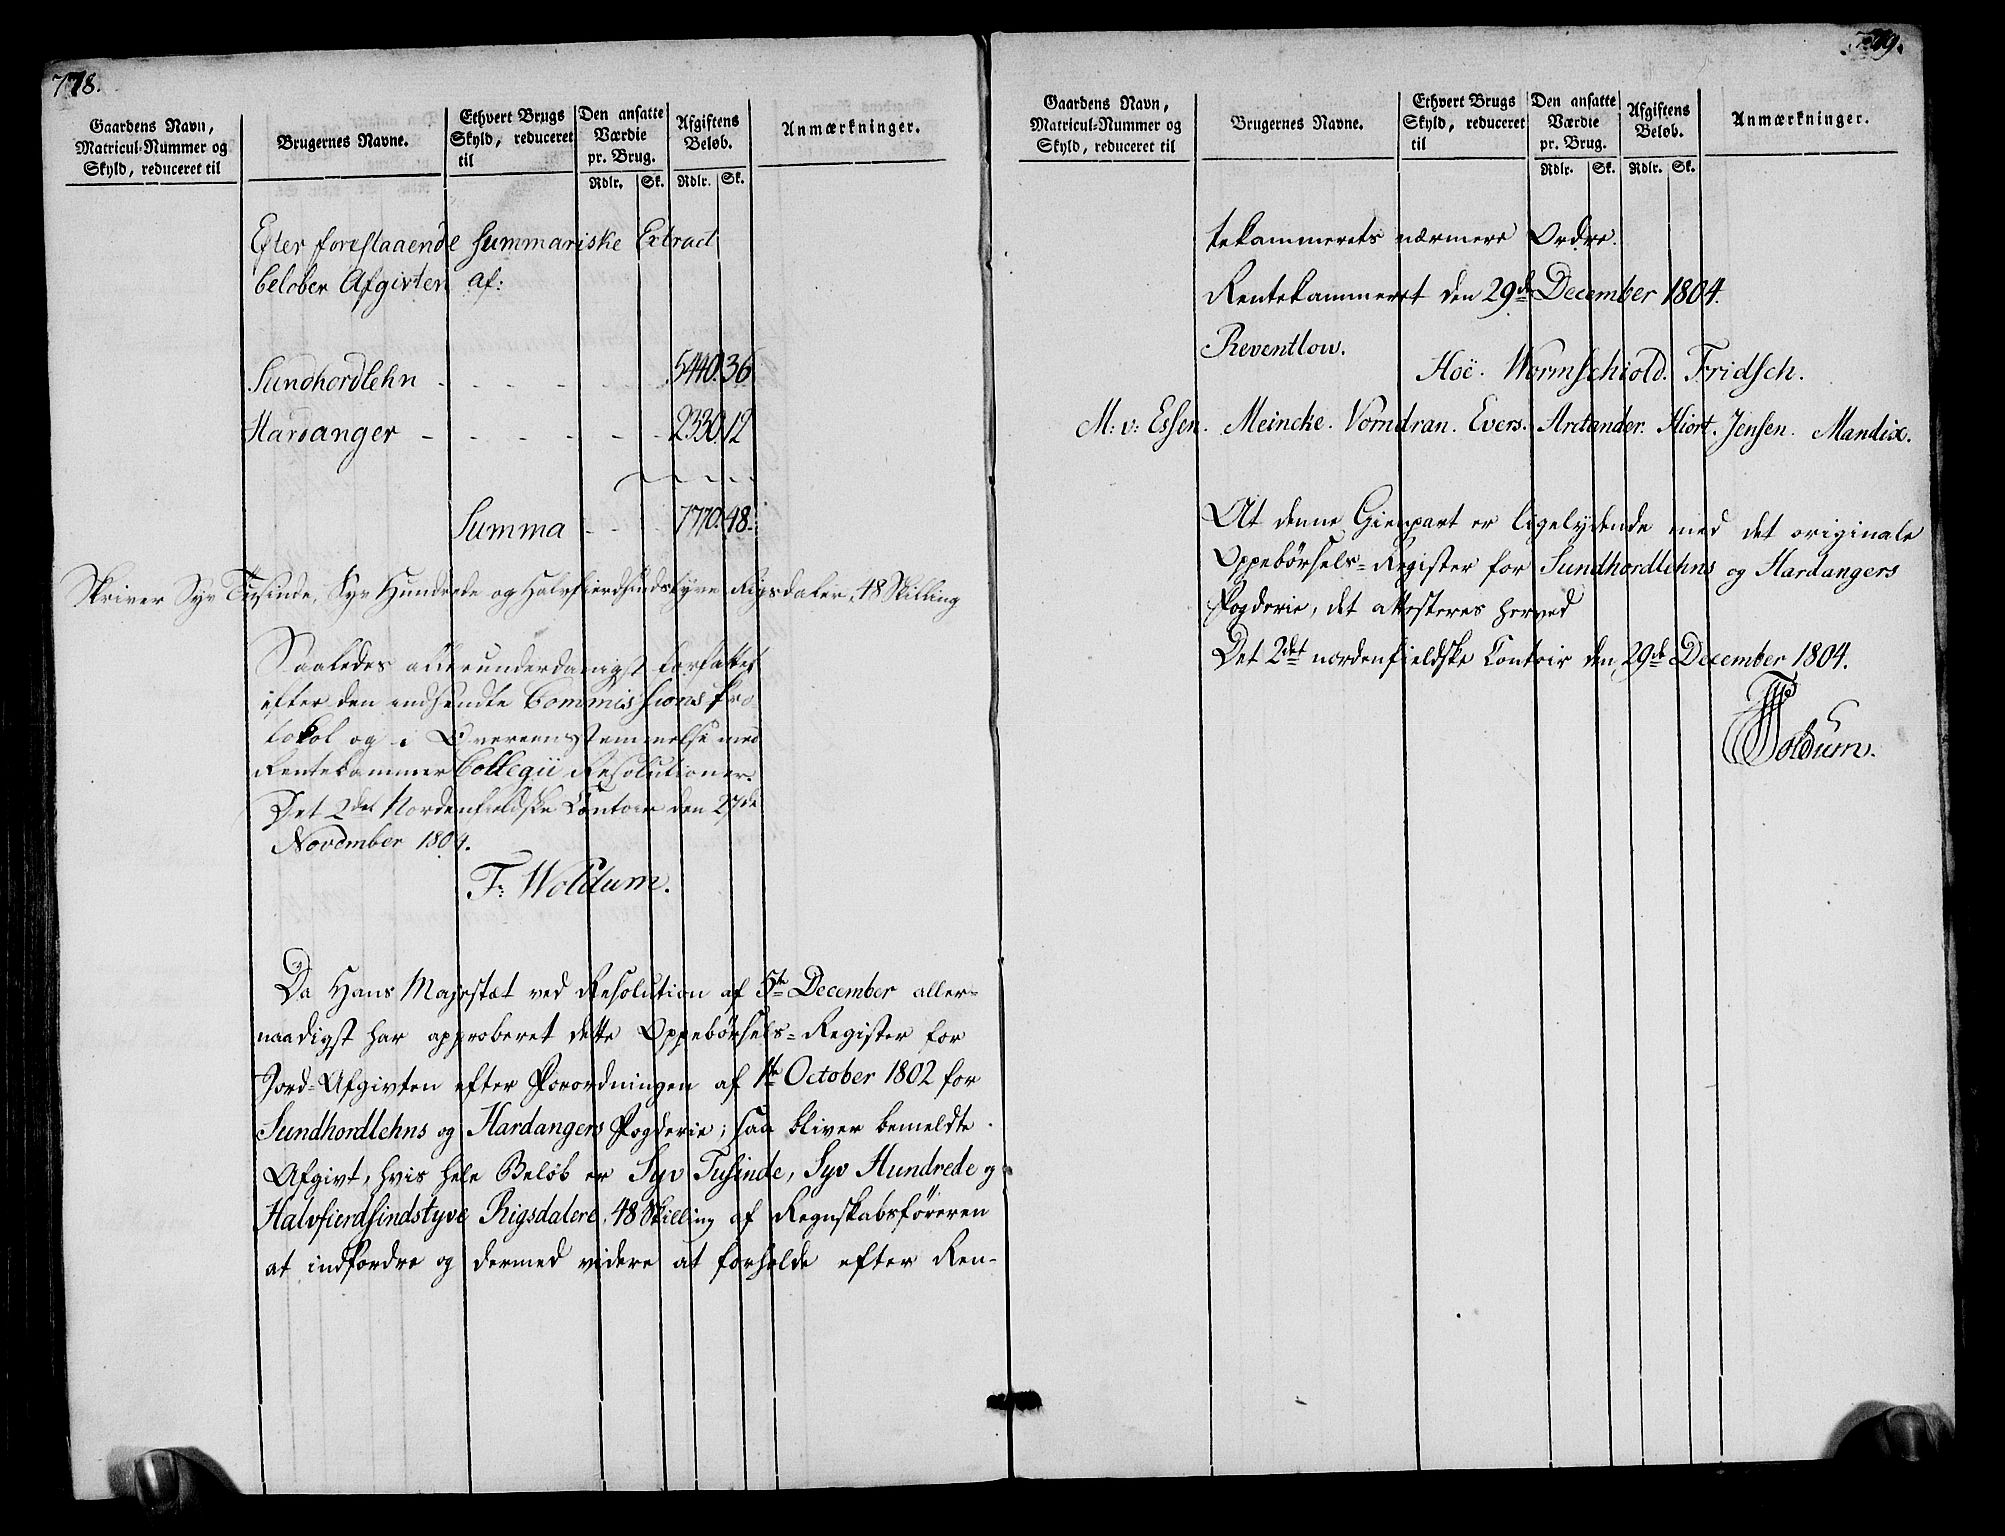 778.
Gaardens Navn,
Matricul-Nummer og
Skyld, reduceret til
Brugernes Navne.
Ethvert Brugs
Skyld, reduceret
til
Den ansatte
Værdie
pr. Brug.
Rdlr. Sk.
Afgiftens
Beløb.
Rdlr. Sk.
Anmærkninger.
Efter forestaaende summariske Extract
beløber Afgivten af:
Sundhordlehn - - - - - - 5440.36
Hardanger - - - - - - 2330.12
Summa - - - 7770.48.
Skriver Syv Tusinde, Syv Hundrede og Halvfierdsindstyve Rigsdaler, 48 Skilling
Saaledes allerunderdanigst forfattet
efter den indsendte Commissions Pro
tokol og i Overeenstemmelse med
Rentekammer Collegii Resolutioner.
Det 2det Nordenfieldske Contoir den 27de
November 1804.
F: Woldum.
Da Hans Majestæt ved Resolution af 5te December aller-
naadigst har approberet dette Oppebörsels-Register for
Jord-Afgivten efter Forordningen af 1te October 1802 for
Sundhordlehns og Hardangers Fogderie; saa bliver bemeldte
Afgivt, hvis hele Beløb er Syv Tusinde, Syv Hundrede og
Halvfierdsindstyve Rigsdalere, 48 Skilling af Regnskabsföreren
at indfordre og dermed videre at forholde efter Ren-
779.
Gaardens Navn,
Matricul-Nummer og
Skyld, reduceret til
Brugernes Navne.
Ethvert Brugs
Skyld, reduceret
til
Den ansatte
Værdie
pr. Brug.
Rdlr. Sk.
Afgiftens
Beløb.
Rdlr. Sk.
Anmærkninger.
tekammerets nærmere Ordre.
Rentekammeret den 29de December 1804.
Reventlow.
Hoë. Wormschiold. Fridsch.
M: v: Essen. Meincke. Vorndran. Evers. Arctander. Hiort. Jensen. Mandix.
At denne Gienpart er ligelydende med det originale
Oppebörsels-Register for Sundhordlehns og Hardangers
Fogderie, det attesteres herved
Det 2det nordenfieldske Contoir den 29de December 1804.
Woldum.